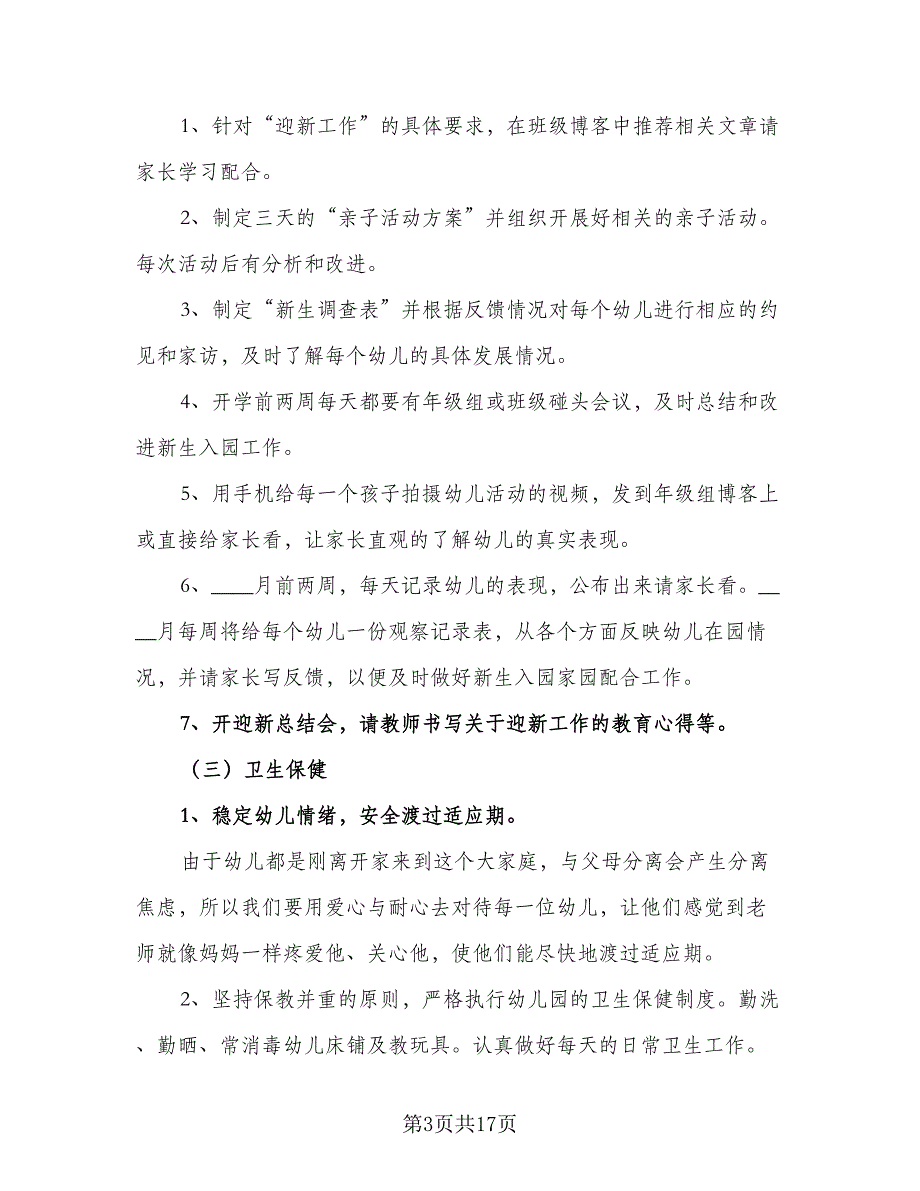 1、针对“迎新工作”的具体要求，在班级博客中推荐相关文章请
家长学习配合。
2、制定三天的“亲子活动方案”并组织开展好相关的亲子活动。
每次活动后有分析和改进。
3、制定“新生调查表”并根据反馈情况对每个幼儿进行相应的约
见和家访，及时了解每个幼儿的具体发展情况。
4、开学前两周每天都要有年级组或班级碰头会议，及时总结和改
进新生入园工作。
5、用手机给每一个孩子拍摄幼儿活动的视频，发到年级组博客上
或直接给家长看，让家长直观的了解幼儿的真实表现。
6、____月前两周，每天记录幼儿的表现，公布出来请家长看。__
__月每周将给每个幼儿一份观察记录表，从各个方面反映幼儿在园情
况，并请家长写反馈，以便及时做好新生入园家园配合工作。
7、开迎新总结会，请教师书写关于迎新工作的教育心得等。
（三）卫生保健
1、稳定幼儿情绪，安全渡过适应期。
由于幼儿都是刚离开家来到这个大家庭，与父母分离会产生分离
焦虑，所以我们要用爱心与耐心去对待每一位幼儿，让他们感觉到老
师就像妈妈一样疼爱他、关心他，使他们能尽快地渡过适应期。
2、坚持保教并重的原则，严格执行幼儿园的卫生保健制度。勤洗
、勤晒、常消毒幼儿床铺及教玩具。认真做好每天的日常卫生工作。
第3页共17页